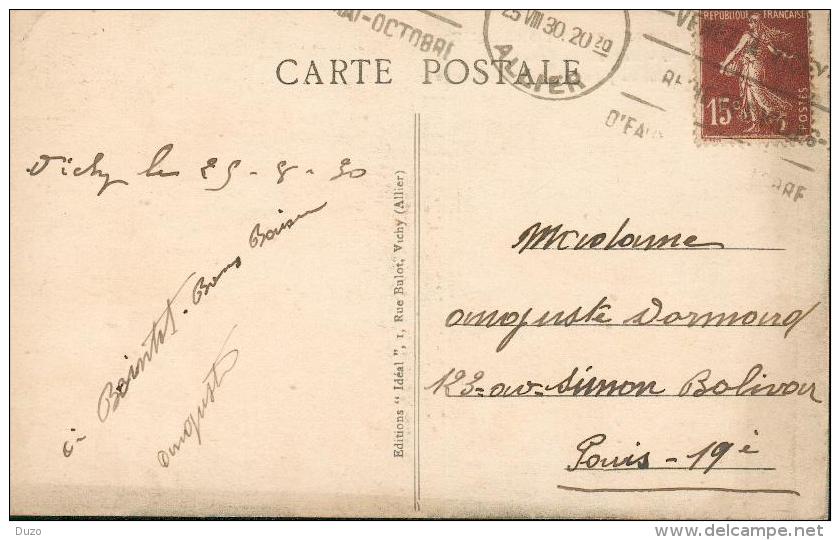 MAI-OCTOBRE
25 VIII 30. 20 20
ALLIER
REPUBLIQUE FRANÇAISE
15c
POSTES
CARTE POSTALE
Vichy le 25-8-30
à Bointot. Bons Baisers
auguste
Editions "Idéal", 1, Rue Bulot, Vichy (Allier)
Madame
auguste Dormard
123-av-Simon Bolivar
Paris-19è
Duzo
www.delcampe.net